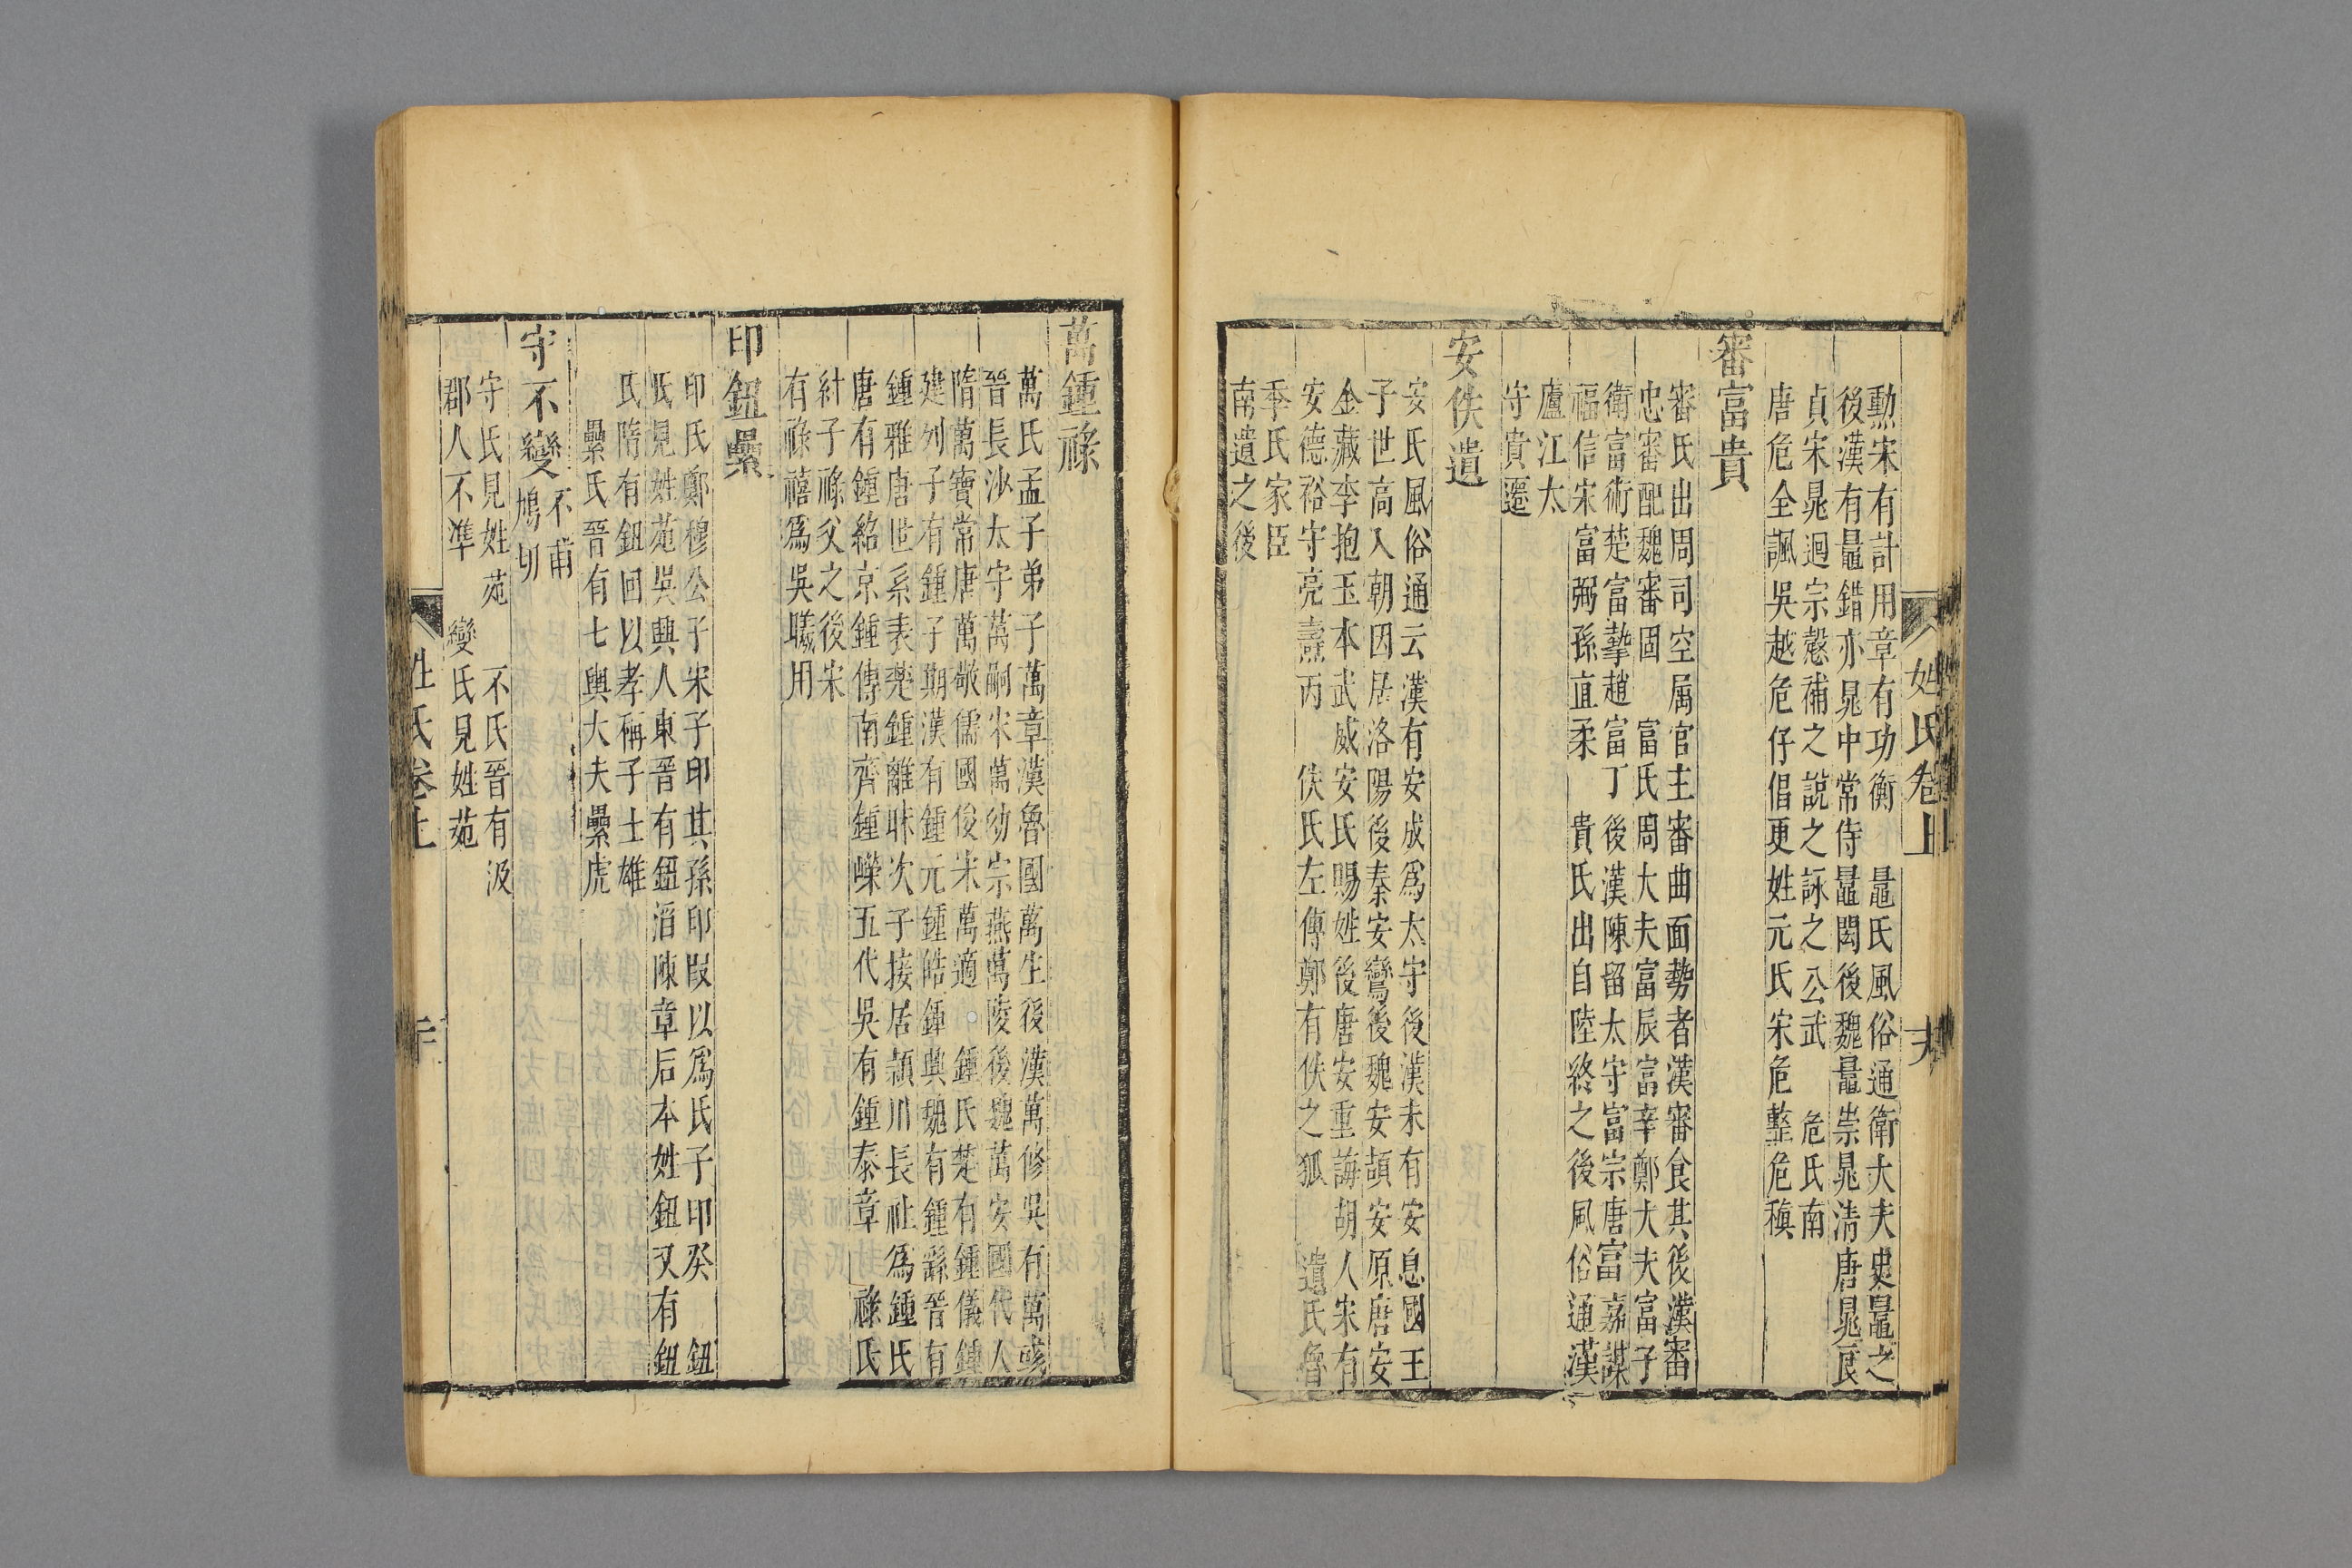 姓氏卷上
勲宋有計用章有功衡　鼂氏風俗通衛大夫史鼂之
後漢有鼂錯亦晁中常侍鼂閎後魏鼂崇晁清唐晁良
貞宋晁迥宗慤補之說之詠之公武　危氏南
唐危全諷吳越危仔倡更姓元氏宋危整危稹
審富貴
審氏出周司空属官主審曲面勢者漢審食其後漢審
忠審配魏審固　富氏周大夫富辰富辛鄭大夫富子
衛富術楚富摯趙富丁後漢陳留太守富宗唐富嘉謀
福信宋富弼孫直柔　貴氏出自陸終之後風俗通漢
廬江太
守貴遷
安佚遺
安氏風俗通云漢有安成為太守後漢末有安息國王
子世高入朝因居洛陽後秦安鸞後魏安頡安原唐安
金藏李抱玉本武威安氏賜姓後唐安重誨胡人宋有
安德裕守亮燾丙　佚氏左傳鄭有佚之狐　遺氏魯
季氏家臣
南遺之後
萬鍾祿
萬氏孟子弟子萬章漢魯國萬生後漢萬修吳有萬彧
晉長沙太守萬嗣宋萬幼宗燕萬陵後魏萬安國代人
隋萬寶常唐萬敬儒國俊宋萬適　鍾氏楚有鍾儀鍾
建列子有鍾子期漢有鍾元鍾皓鍾興魏有鍾繇晉有
鍾雅唐世系表楚鍾離昧次子接居頴川長社為鍾氏
唐有鍾紹京鍾傳南齊鍾嶸五代吳有鍾泰章　祿氏
紂子祿父之後宋
有祿禧為吳曦用
印鈕纍
印氏鄭穆公子宋子印其孫印段以為氏子印癸　鈕
氏見姓苑吳興人東晉有鈕滔陳章后本姓鈕又有鈕
氏隋有鈕回以孝稱子士雄
纍氏晉有七輿大夫纍虎
守不變不甫鳩切
守氏見姓苑　不氏晉有汲
郡人不準　變氏見姓苑
姓氏卷上